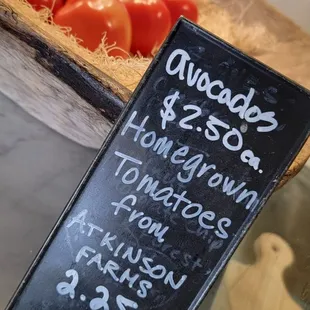 avocados
$2.50 ea.
Homegrown
Tomatoes
from
ATKINSON
FARMS
2.25